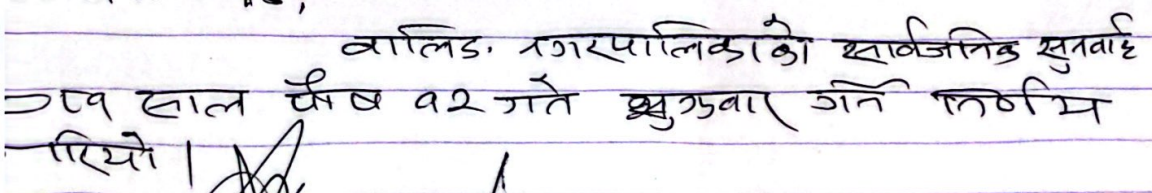 वालिङ. नगरपालिकाको सार्वजनिक सुनवाई
२०७५ साल पौष १२ गते शुक्रवार गर्ने निर्णय
गरियो।